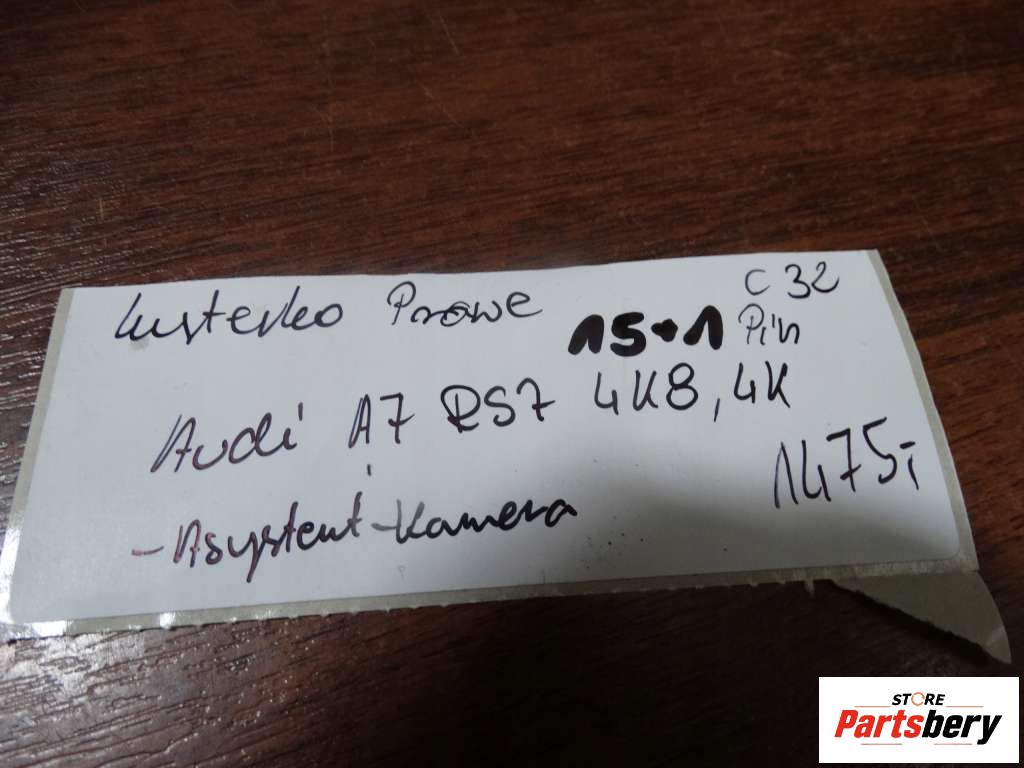 Lusterko Prawe
C 32
15+1 Pin
Audi A7 RS7 4K8, 4K
1475,-
- Asystent - Kamera
STORE
Partsbery